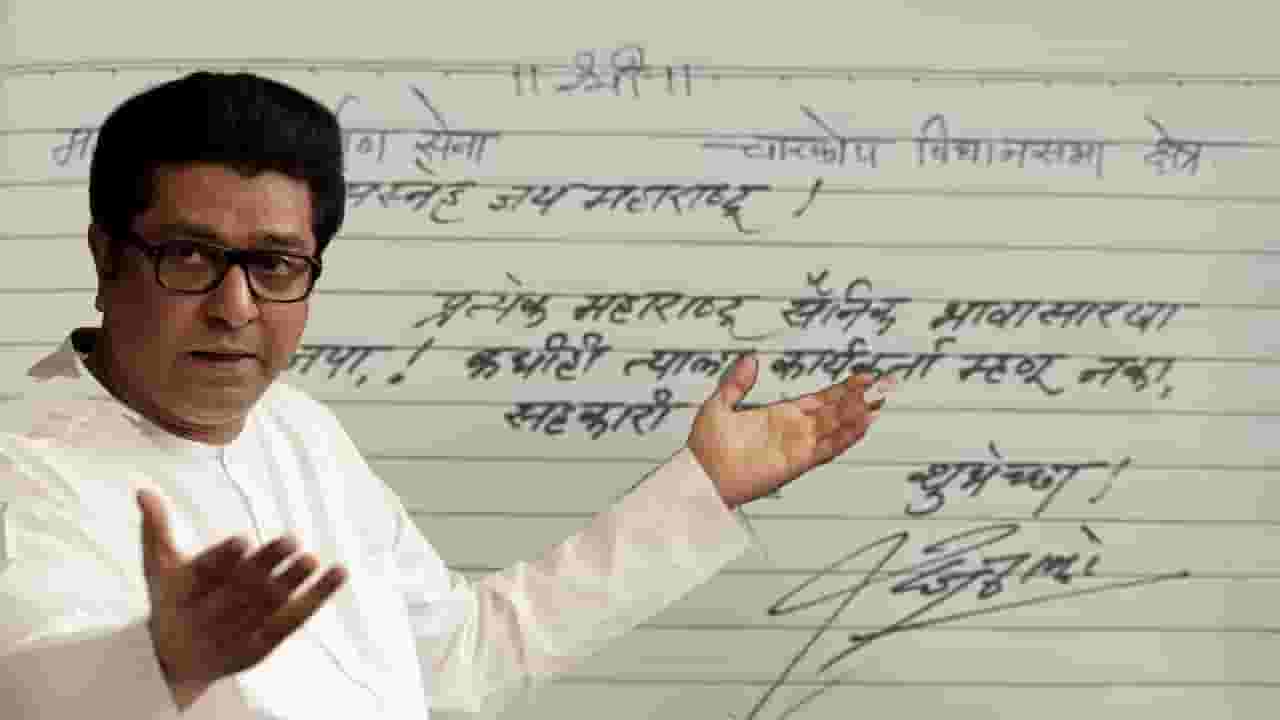 ॥ श्री ॥
सेना चारकोप विधानसभा क्षेत्र
सस्नेह जय महाराष्ट्र !
प्रत्येक महाराष्ट्र सैनिक भावासारखा
जपा,! कधीही त्याला कार्यकर्ता म्हणू नका,
सहकारी
शुभेच्छा!